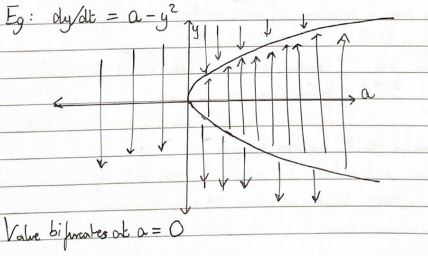 Eg: dy/dt = a - y²
y
a
Value bifurcates at a = 0